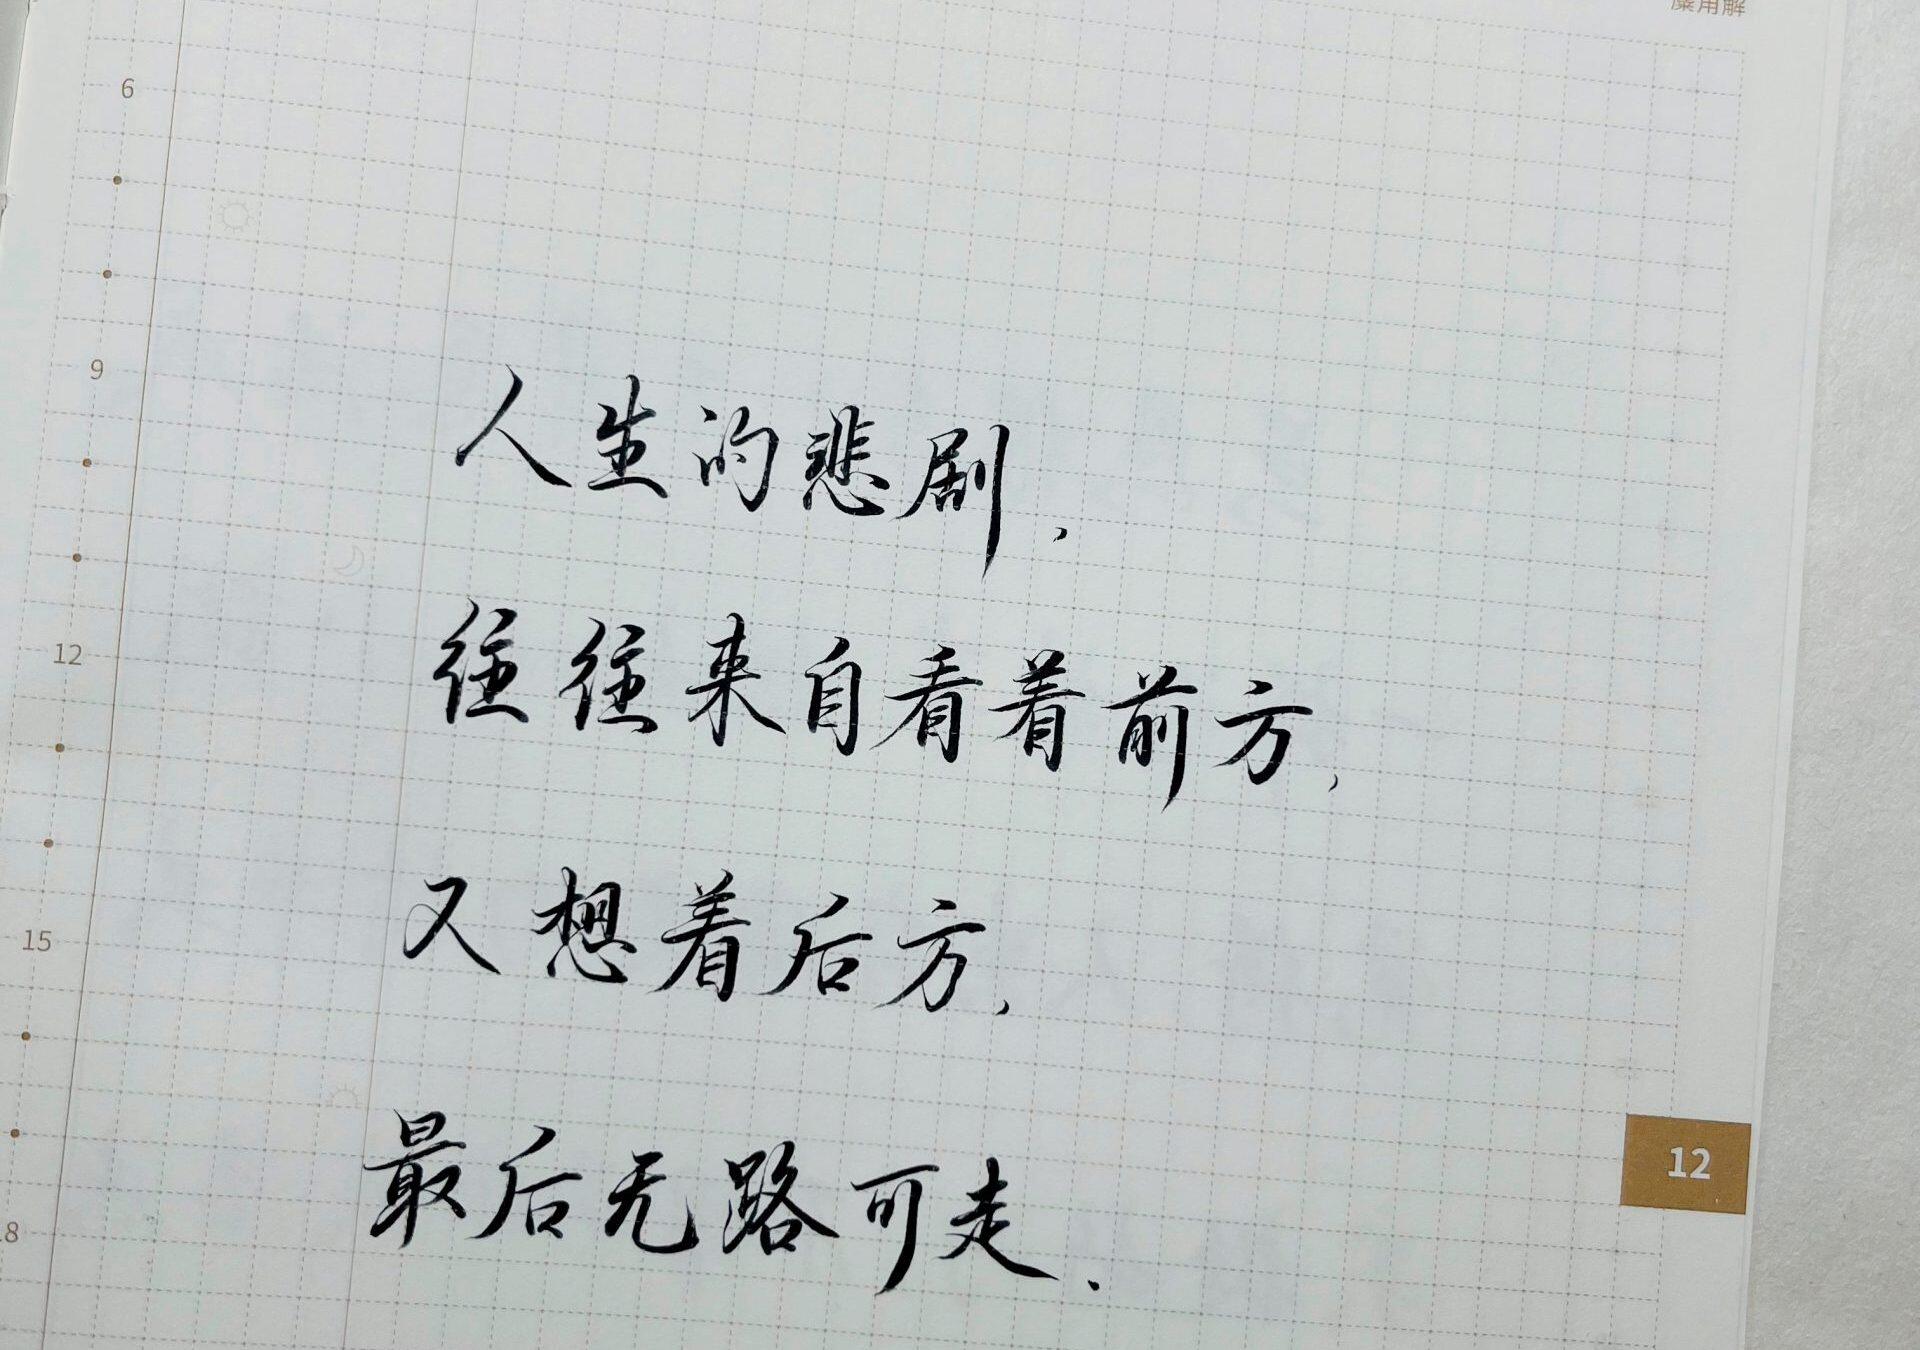 6
9
人生的悲剧，
往往来自看着前方，
12
又想着后方，
15
最后无路可走.
12